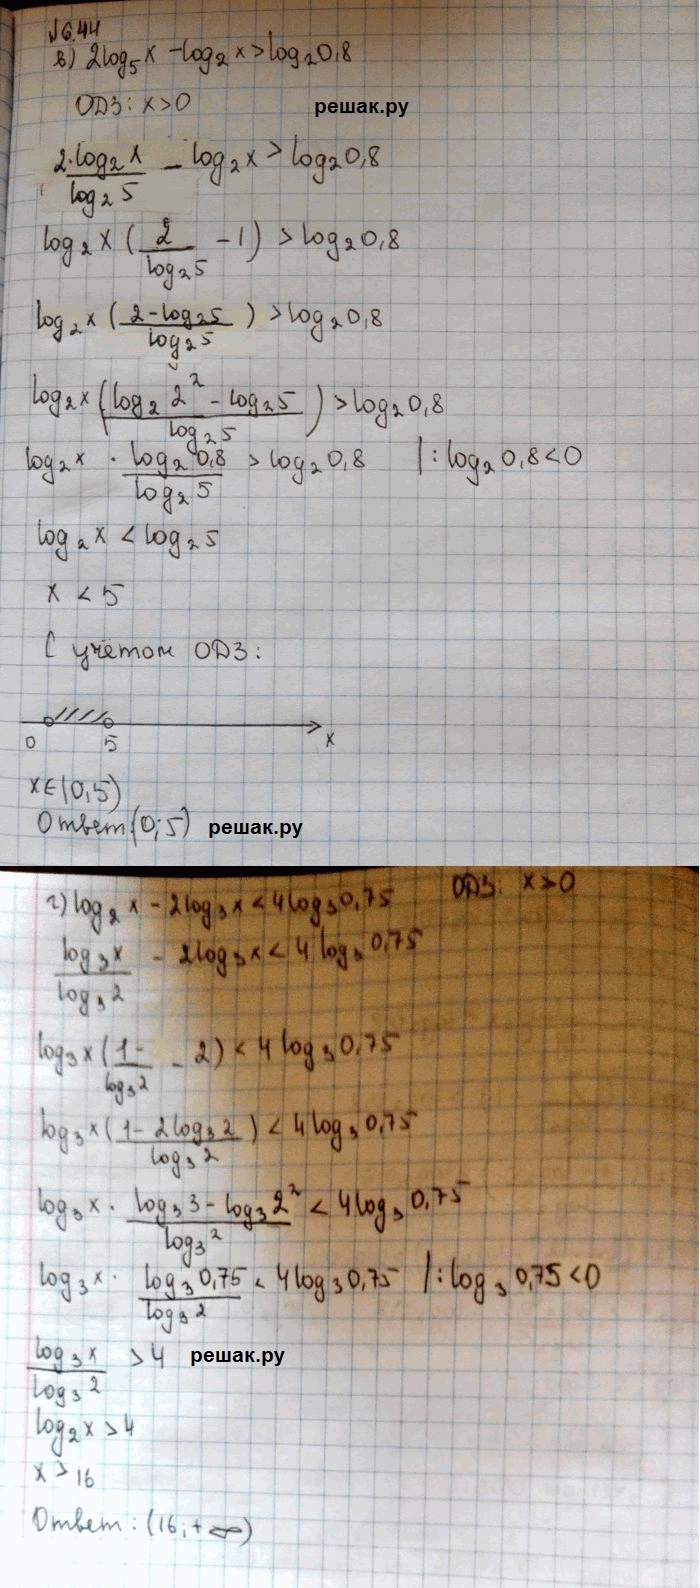 №6.44
в) 2log₅x - log₂x > log₂0,8
ОДЗ: x>0
решак.ру
2·log₂x / log₂5 - log₂x > log₂0,8
log₂x (2 / log₂5 - 1) > log₂0,8
log₂x (2-log₂5 / log₂5) > log₂0,8
log₂x (log₂2² - log₂5 / log₂5) > log₂0,8
log₂x · log₂0,8 / log₂5 > log₂0,8 |: log₂0,8<0
log₂x < log₂5
x < 5
С учётом ОДЗ:
0 5 x
x∈(0,5)
Ответ(0;5) решак.ру
г) log₂x - 2log₃x < 4log₃0,75 ОДЗ: x>0
log₃x / log₃2 - 2log₃x < 4log₃0,75
log₃x (1- / log₃2 - 2) < 4log₃0,75
log₃x (1-2log₃2 / log₃2) < 4log₃0,75
log₃x · log₃3 - log₃2² / log₃2 < 4log₃0,75
log₃x · log₃0,75 / log₃2 < 4log₃0,75 |: log₃0,75<0
log₃x / log₃2 > 4 решак.ру
log₂x > 4
x > 16
Ответ: (16;+∞)